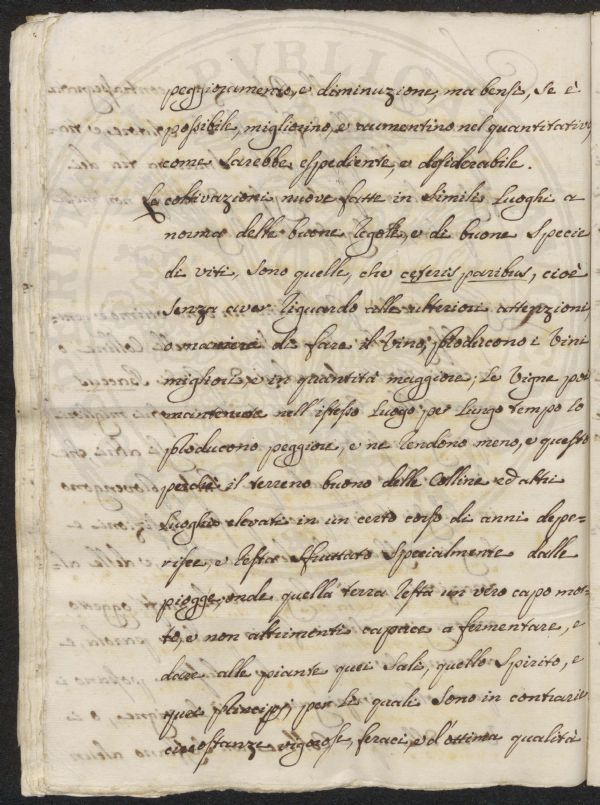 peggioramento, e diminuzione, ma bensì, se è
possibile, migliorino, e aumentino nel quantitativo,
come sarebbe espediente, e desiderabile.
Le coltivazioni nuove fatte in simili luoghi a
norma delle buone regole, e di buone specie
di viti, sono quelle, che ceteris paribus, cioè
senza aver riguardo alle ulteriori attenzioni,
o maniera di fare il vino, producono i Vini
migliori, e in quantità maggiore; Le Vigne poi
mantenute nell'istesso luogo per lungo tempo lo
producono peggiore, e ne rendono meno, e questo
perchè il terreno buono delle Colline ed altri
luoghi elevati in un certo corso di anni depe-
risce, e resta sfruttato specialmente dalle
piogge, onde quella terra resta un vero capo mor-
to, e non altrimenti capace a fermentare, e
dare alle piante quei sali, quello spirito, e
quei principj, per li quali sono in contrarie
circostanze vigorose, feraci, e d'ottima qualità